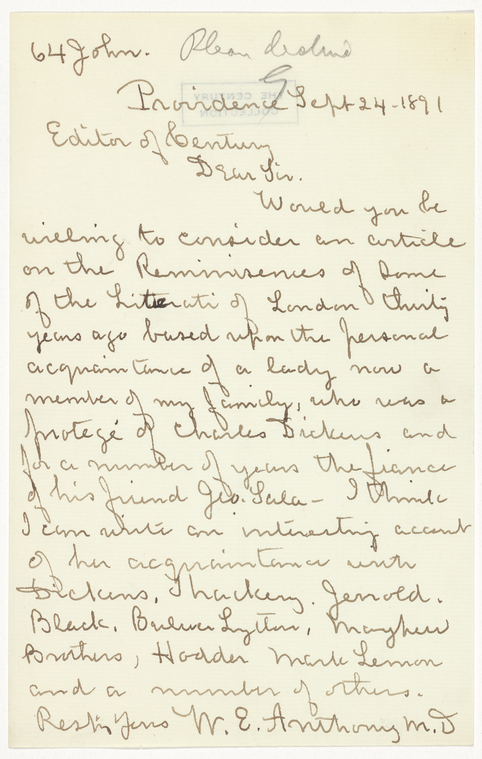 64 John. Please decline
G
THE CENTURY
COLLECTION
Providence Sept 24-1891
Editor of Century
Dear Sir.
Would you be
willing to consider an article
on the Reminisences of some
of the Literati of London thirty
years ago based upon the personal
acquaintance of a lady now a
member of my family, who was a
protegé of Charles Dickens and
for a number of years the fiance
of his friend Geo. Sala - I think
I can write an interesting account
of her acquaintance with
Dickens, Thackery. Jerrold.
Black. Bulwer Lytton, Mayhew
Brothers, Hodder Mark Lemon
and a number of others.
Resp'y Yours W. E. Anthony M.D